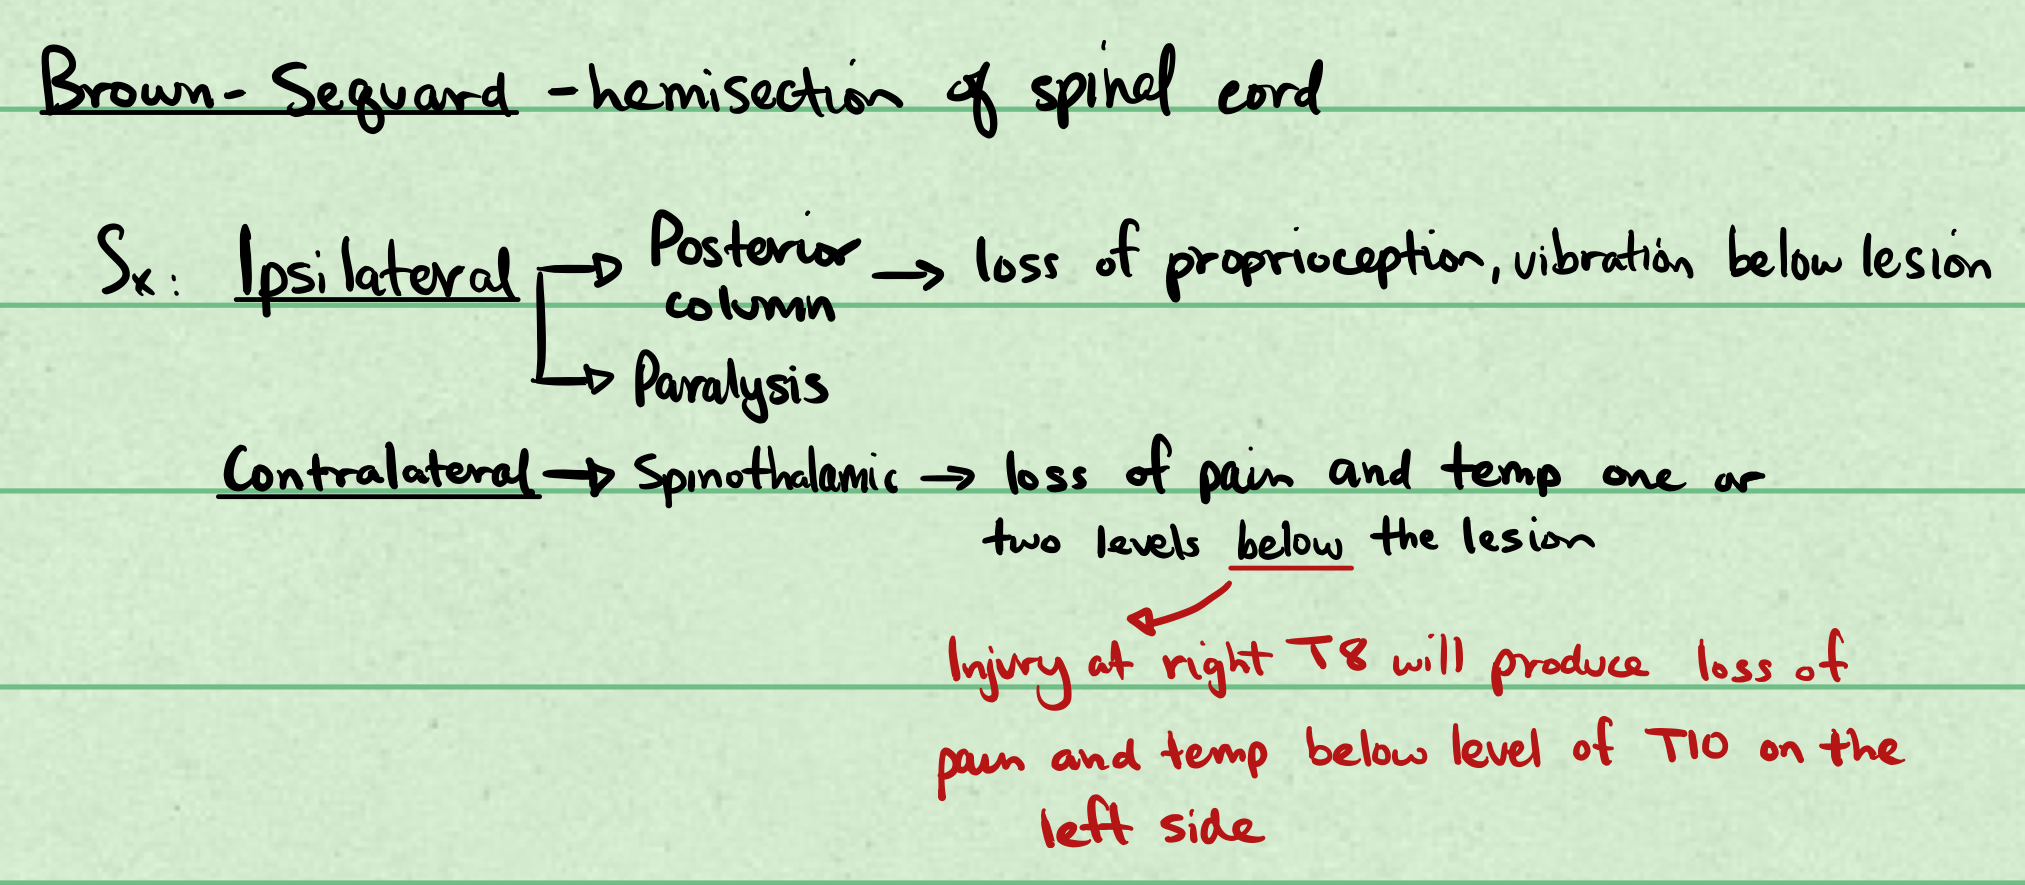 Brown-Sequard - hemisection of spinal cord
Sx: Ipsilateral → Posterior column → loss of proprioception, vibration below lesion
→ Paralysis
Contralateral → Spinothalamic → loss of pain and temp one or
two levels below the lesion
Injury at right T8 will produce loss of
pain and temp below level of T10 on the
left side